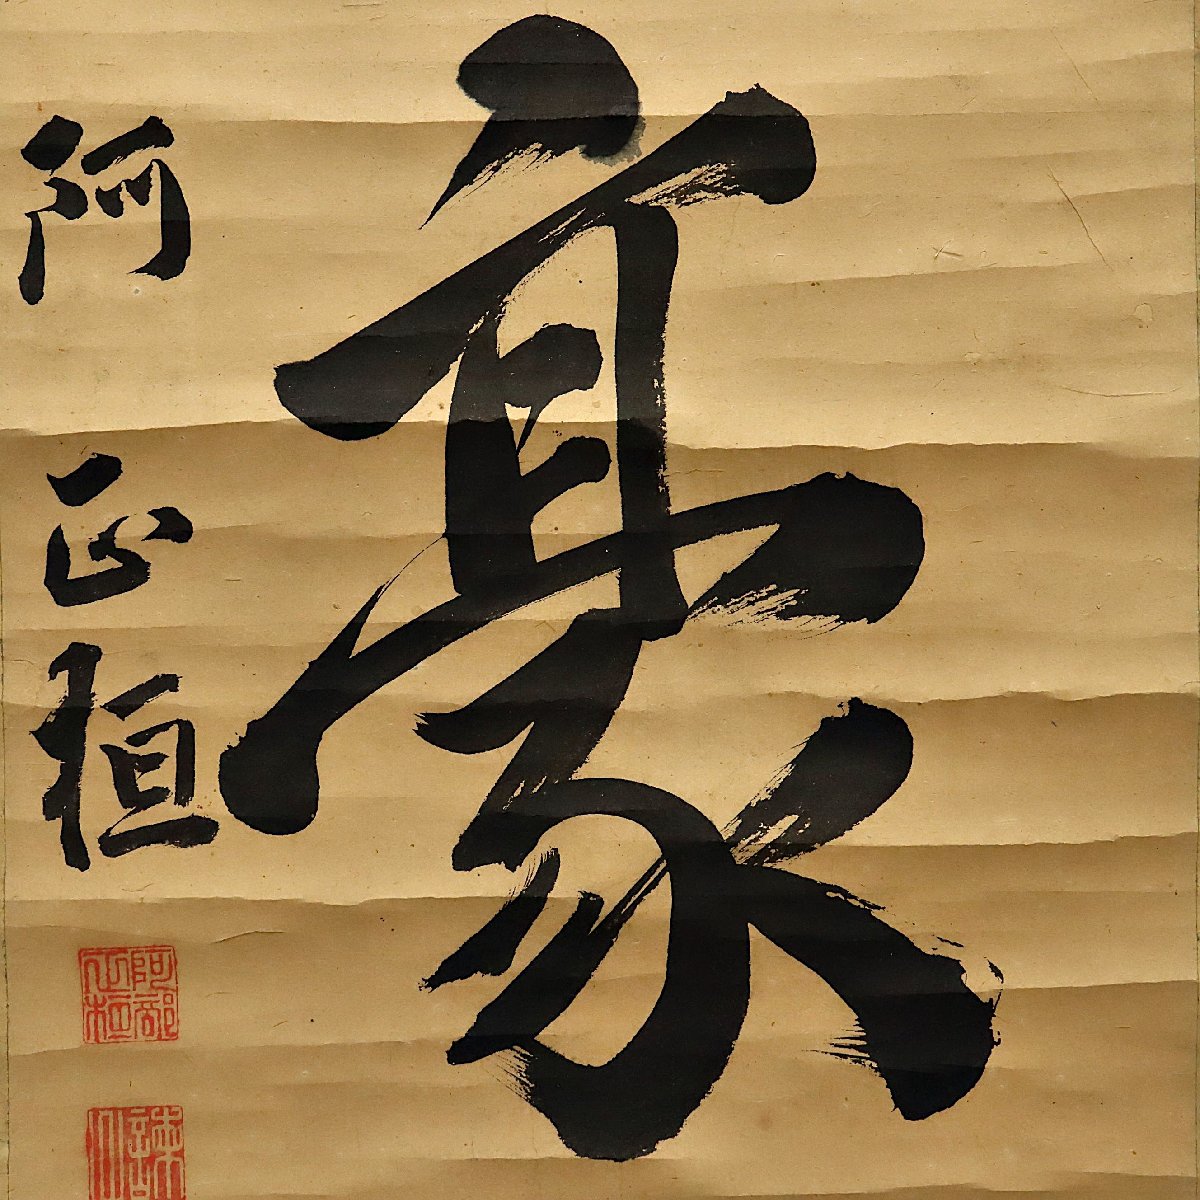 豪
阿正桓
阿部
正桓